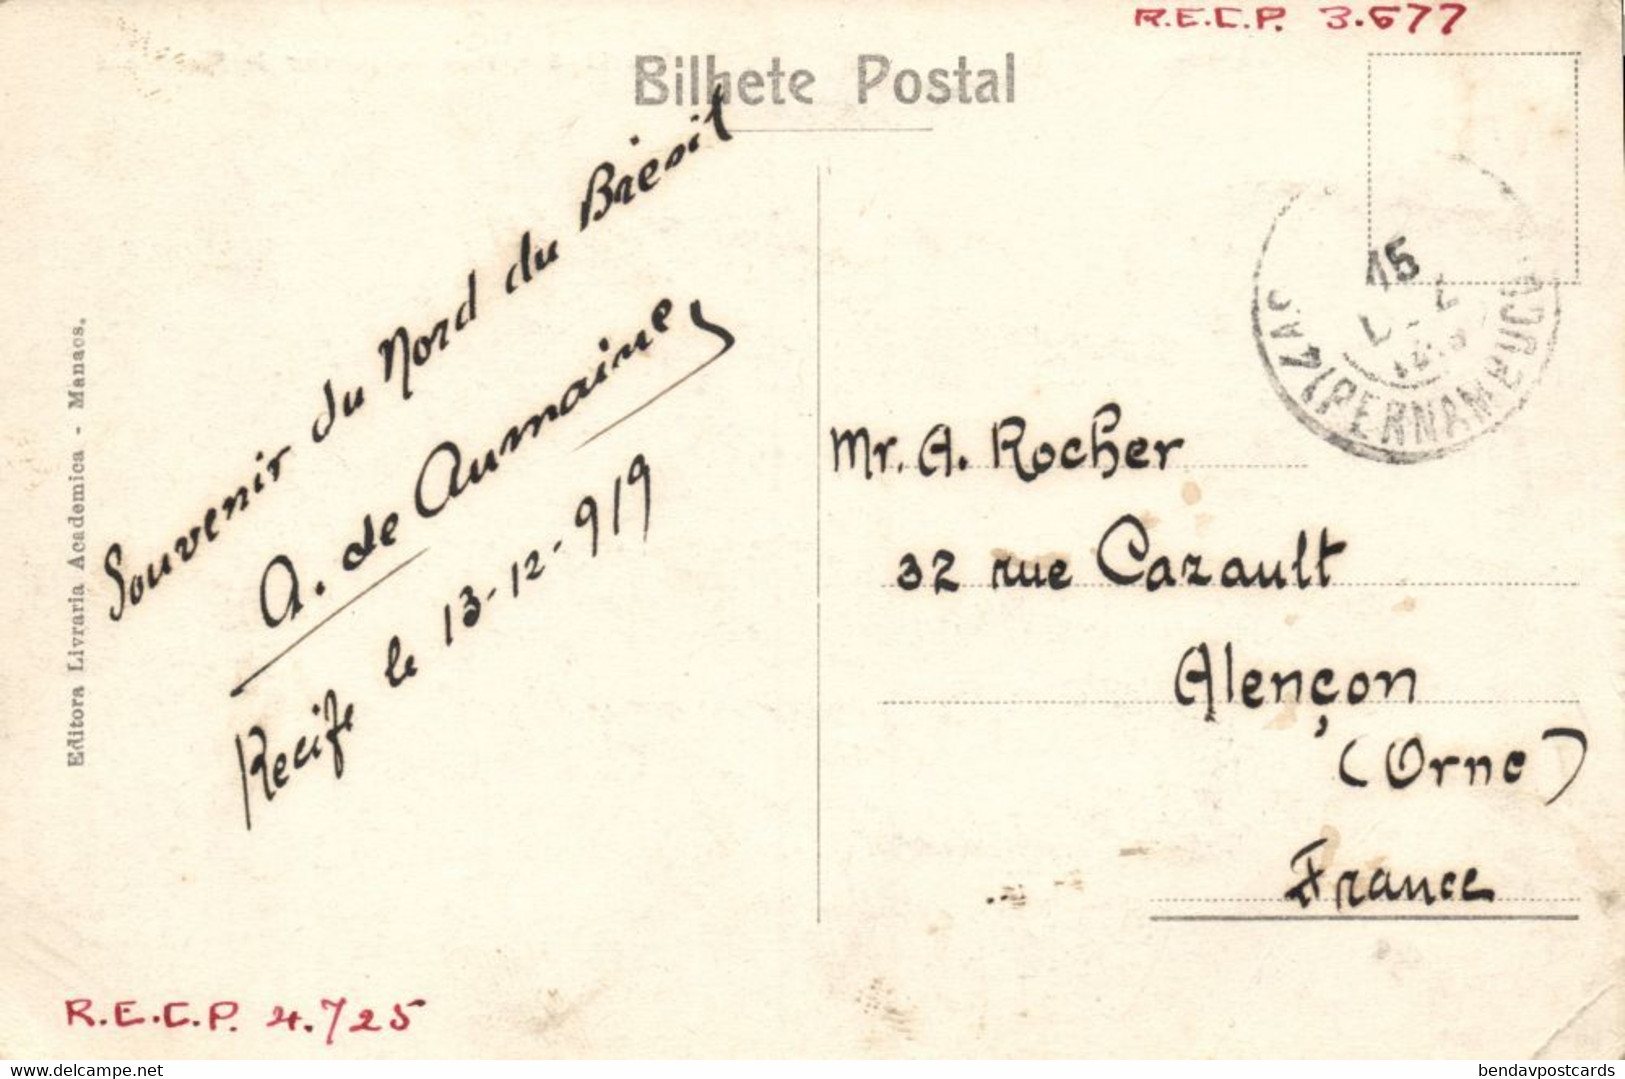 R.E.C.P. 3.677
Bilhete Postal
Souvenir du Nord du Brésil
A. de Aumaine
Recife le 13-12-919
Editora Livraria Academica - Manaos.
15
(PERNAMBUCO)
Mr. A. Rocher
32 rue Cazault
Alençon
(Orne)
France
R.E.C.P. 4.725
delcampe.net
bendavpostcards